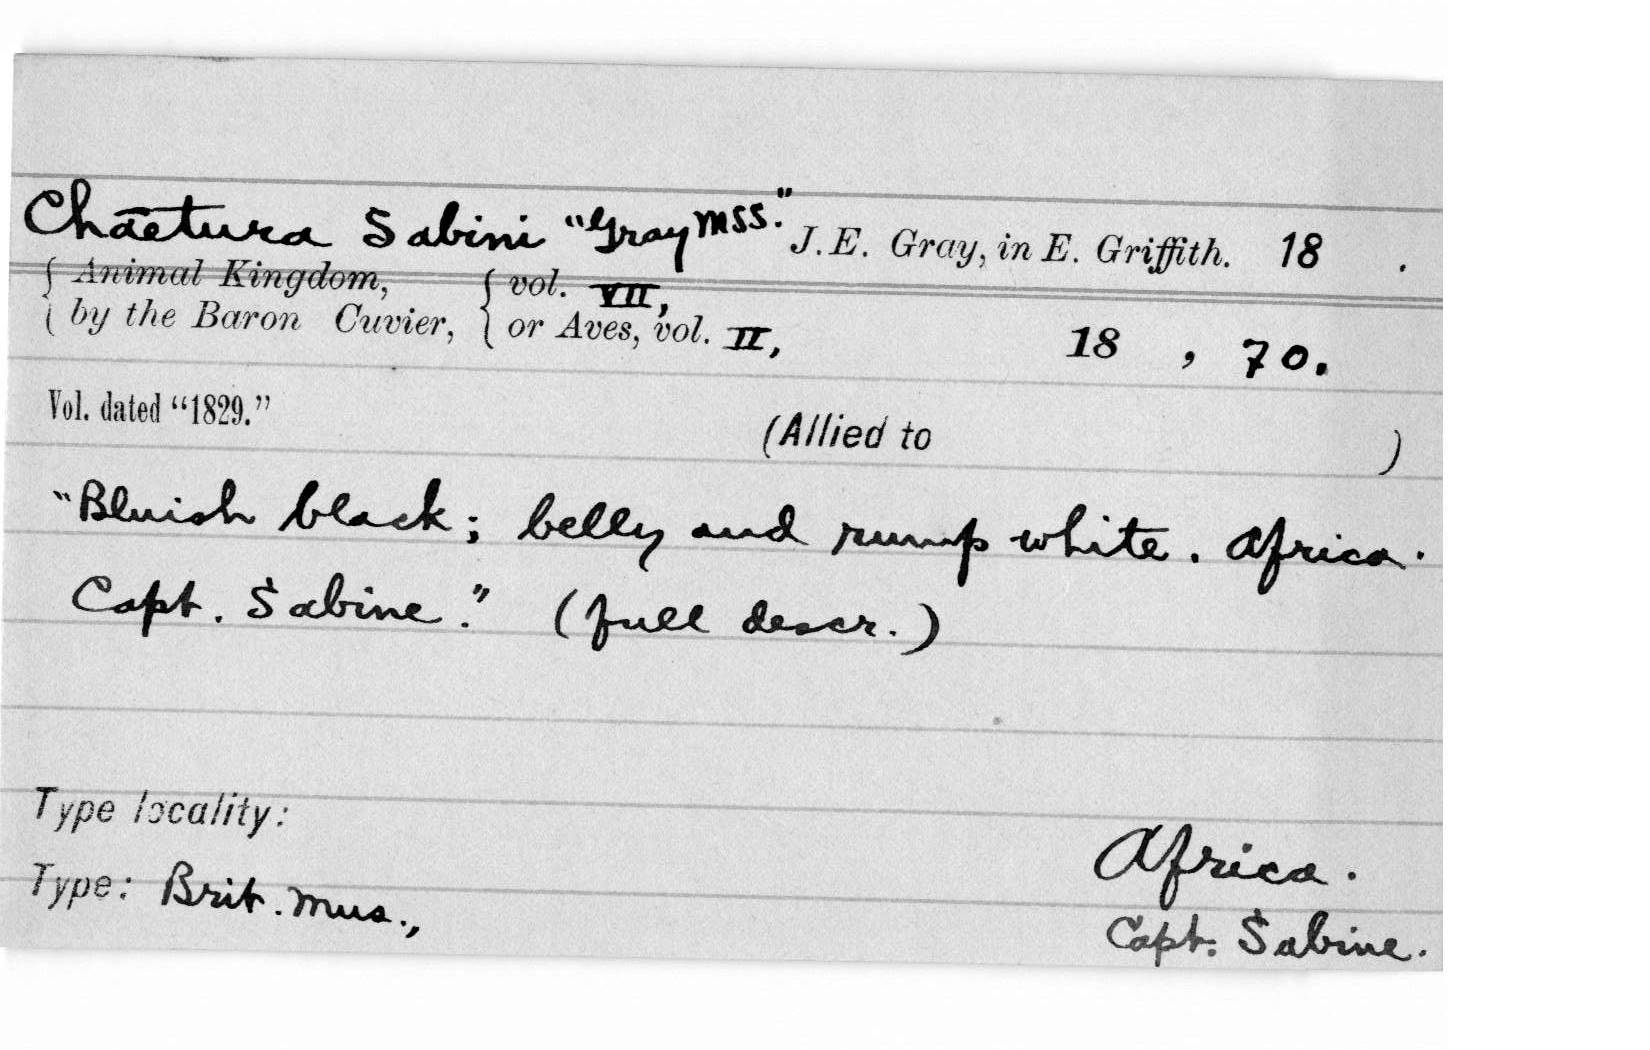 Chaetura Sabini "Gray MSS." J.E. Gray, in E. Griffith. 18 .
{ Animal Kingdom, { vol. VII,
{ by the Baron Cuvier, { or Aves, vol. II, 18 , 70.
Vol. dated "1829." (Allied to )
"Bluish black; belly and rump white. Africa.
Capt. Sabine." (full descr.)
Type locality:
Africa.
Type: Brit. Mus.,
Capt. Sabine.